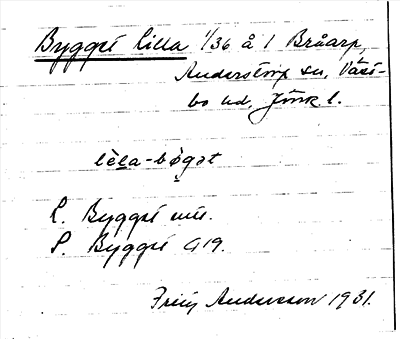 Bygget Lilla 1/36 å 1 Bråarp,
Anderstorp sn, Väst-
bo hd, Jönk l.
lèla-bø̀gət
L. Bygget
S. Bygget G 19.
Andersson 1931.